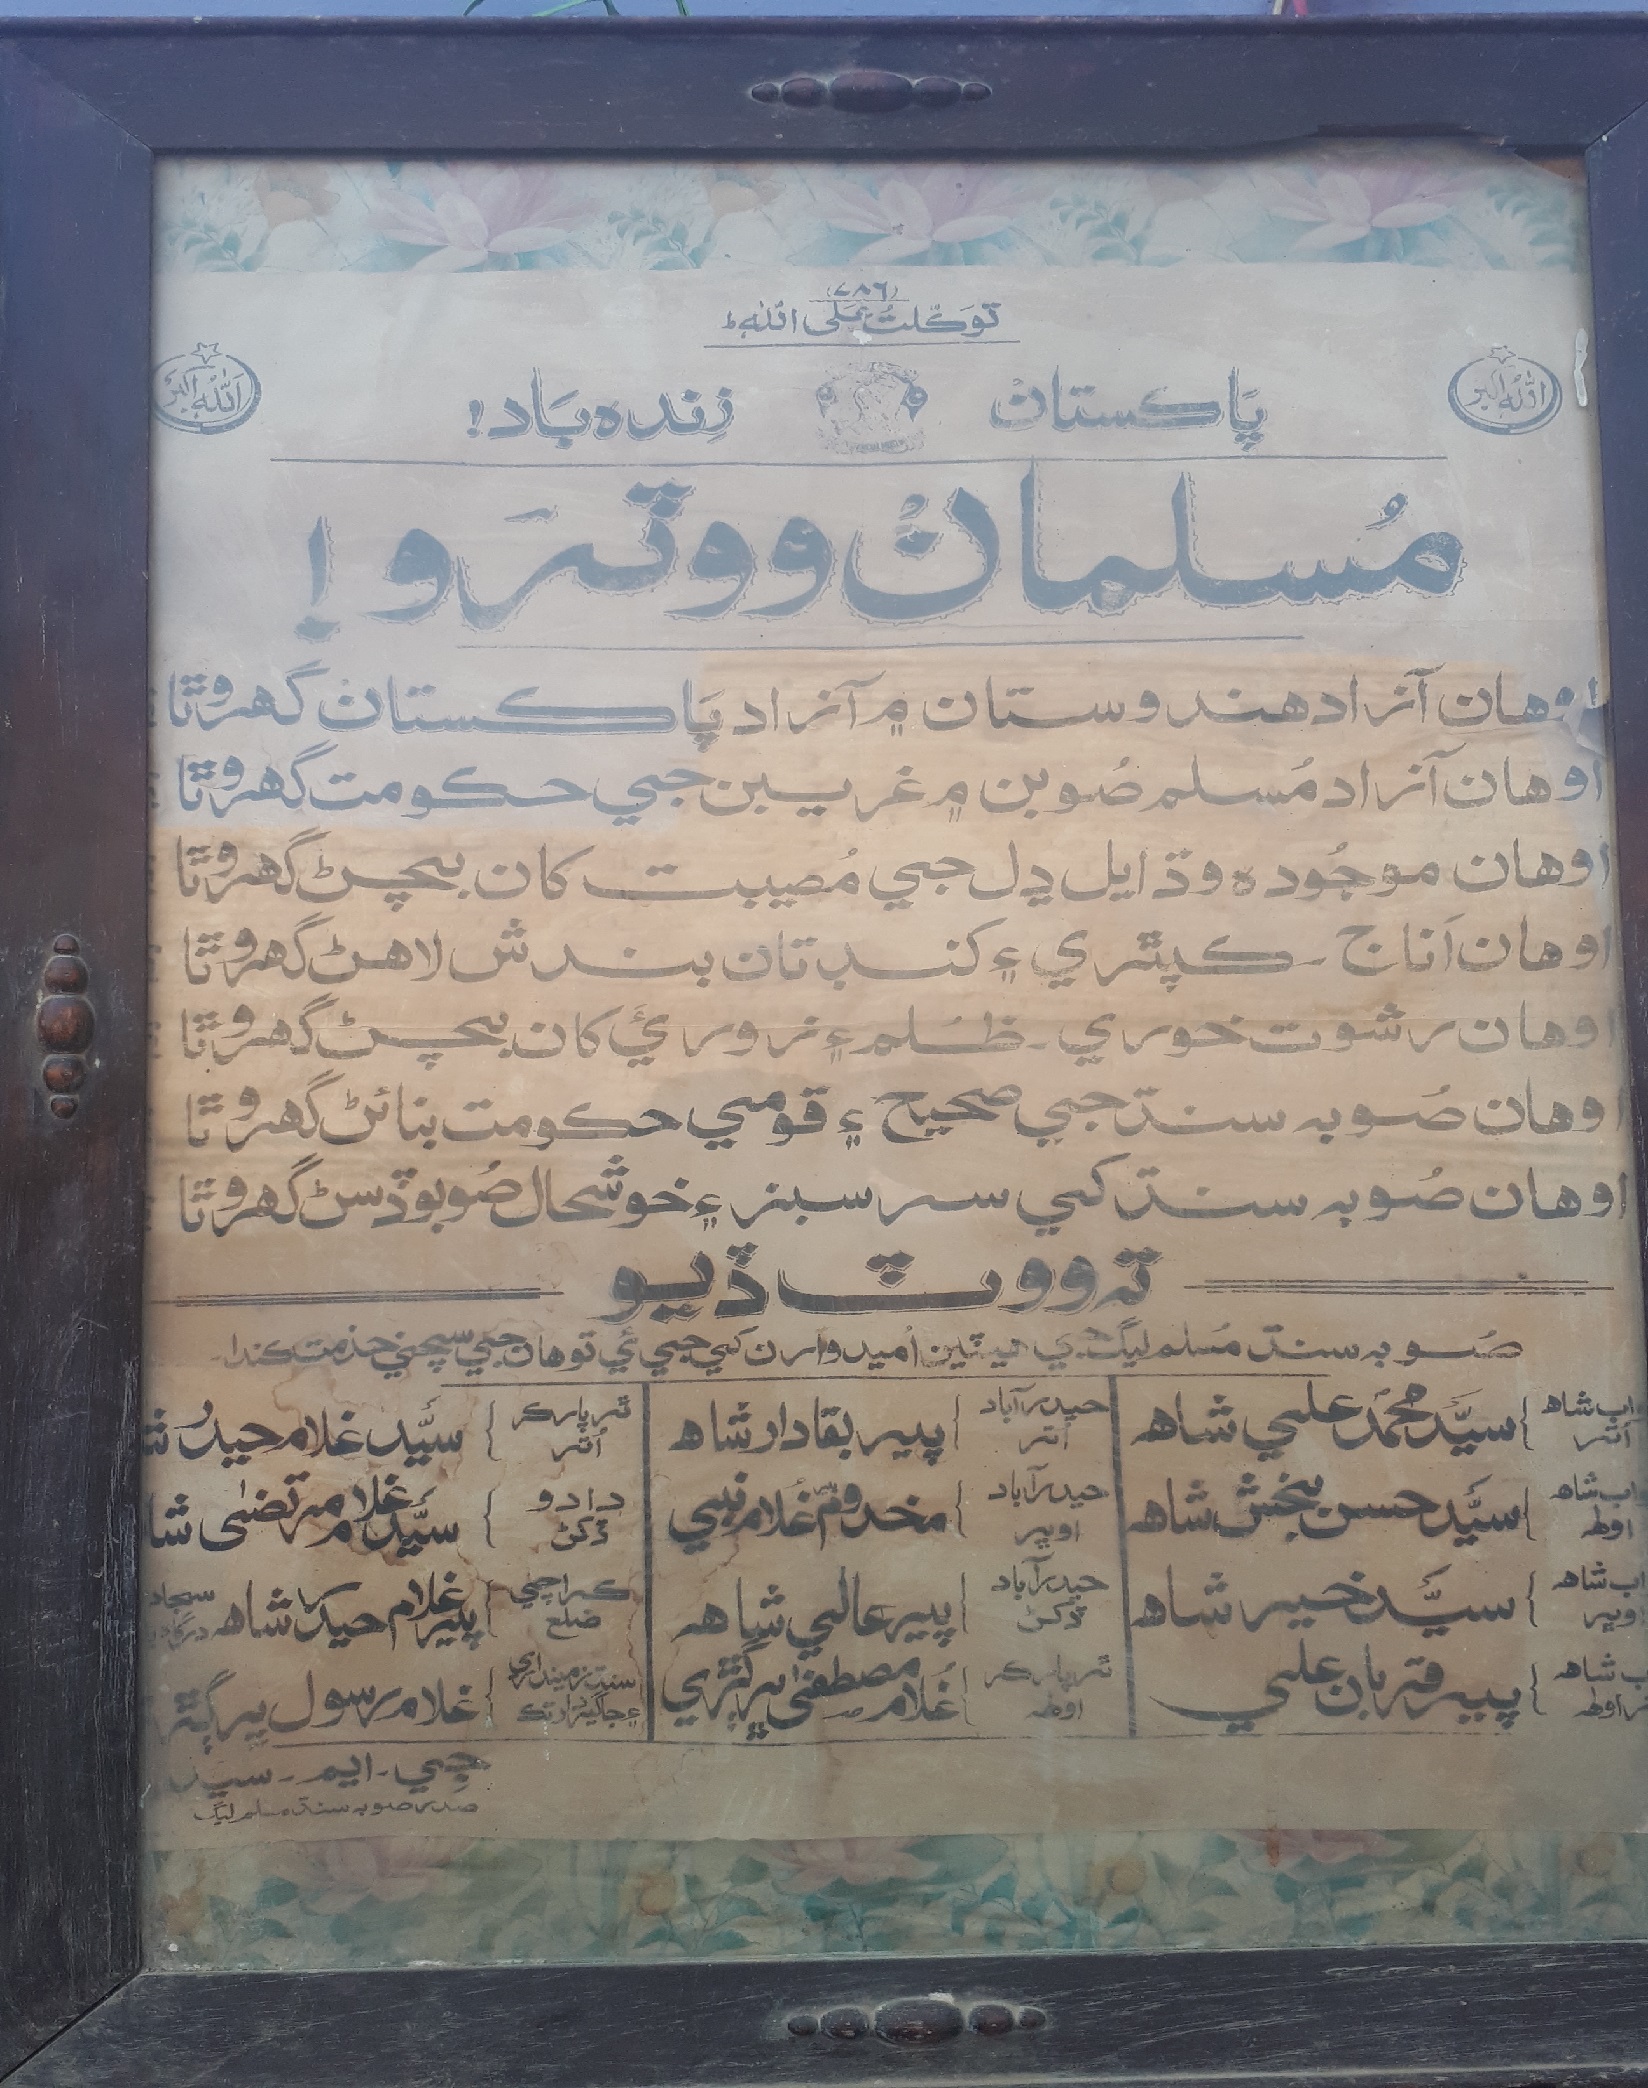 (٧٨٦)
توَڪّلتُ عَلَى اللّٰهِ ط
اَللّٰهُ اَڪبَر
پَاڪستانْ زِنده بَاد!
اَللّٰهُ اَڪبَر
مُسلمانْ ووٽرو!
اوهان آزاد هندوستان ۾ آزاد پَاڪستانْ گهرو ٿا
اوهان آزاد مُسلم صُوبن ۾ غريبن جي حڪومت گهرو ٿا
اوهان موجُوده وڌايل ڍل جي مُصيبت کان بچڻ گهرو ٿا
اوهان اَناج ـ ڪپڙي ۽ کنڊ تان بندش لاهڻ گهرو ٿا
اوهان رشوت خوري ـ ظلم ۽ زوريءَ کان بچڻ گهرو ٿا
اوهان صُوبہ سنڌ جي صحيح ۽ قومي حڪومت بنائڻ گهرو ٿا
اوهان صُوبہ سنڌ کي سرسبز ۽ خوشحال صُوبو ڏسڻ گهرو ٿا
تہ ووٽ ڏيو
صُوبہ سنڌ مُسلم ليگ جي هيٺين اُميدوارن کي جيئي توهان جي سچي خدمت ڪندا
اب شاهہ اُتر } سيَّد محمّد علي شاهہ
حيدرآباد اُتر } پير بقادار شاهہ
ٿرپارڪر اُتر } سيَّد غلام حيدر
اب شاهہ اولهہ } سيَّد حسن بخش شاهہ
حيدرآباد اوڀر } مخدوم غلام نبي
دادو ڏکڻ } سيَّد غلام مرتضيٰ
اب شاهہ اوڀر } سيَّد خير شاهہ
حيدرآباد ڏکڻ } پير عالي شاهہ
ڪراچي ضلع } پير غلام حيدر شاهہ
شاهہ اولهہ } پير قربان علي
ٿرپارڪر اولهہ } غلام مصطفيٰ ڀرڳڙي
سنڌ زمينداري ۽ جاگيردار تڪ } غلام رسول
جي ـ ايم ـ سيد
صدر صوبہ سنڌ مسلم ليگ